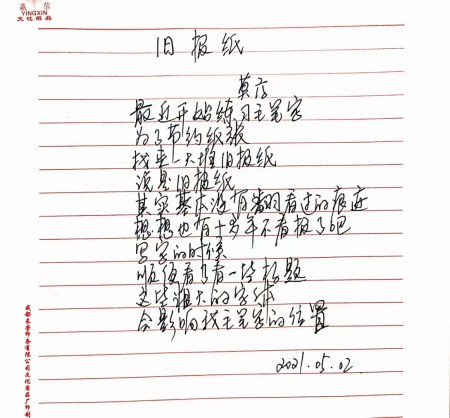 YINGXIN
文化纸品
旧报纸
莫
最近开始练习毛笔字
为了节约纸张
找来一大堆旧报纸
说是旧报纸
其实基本没有翻看过的痕迹
想想也有十多年不看报了吧
写字的时候
顺便看了看一些标题
文字粗大的字体
会影响我毛笔字的位置
2021.05.02